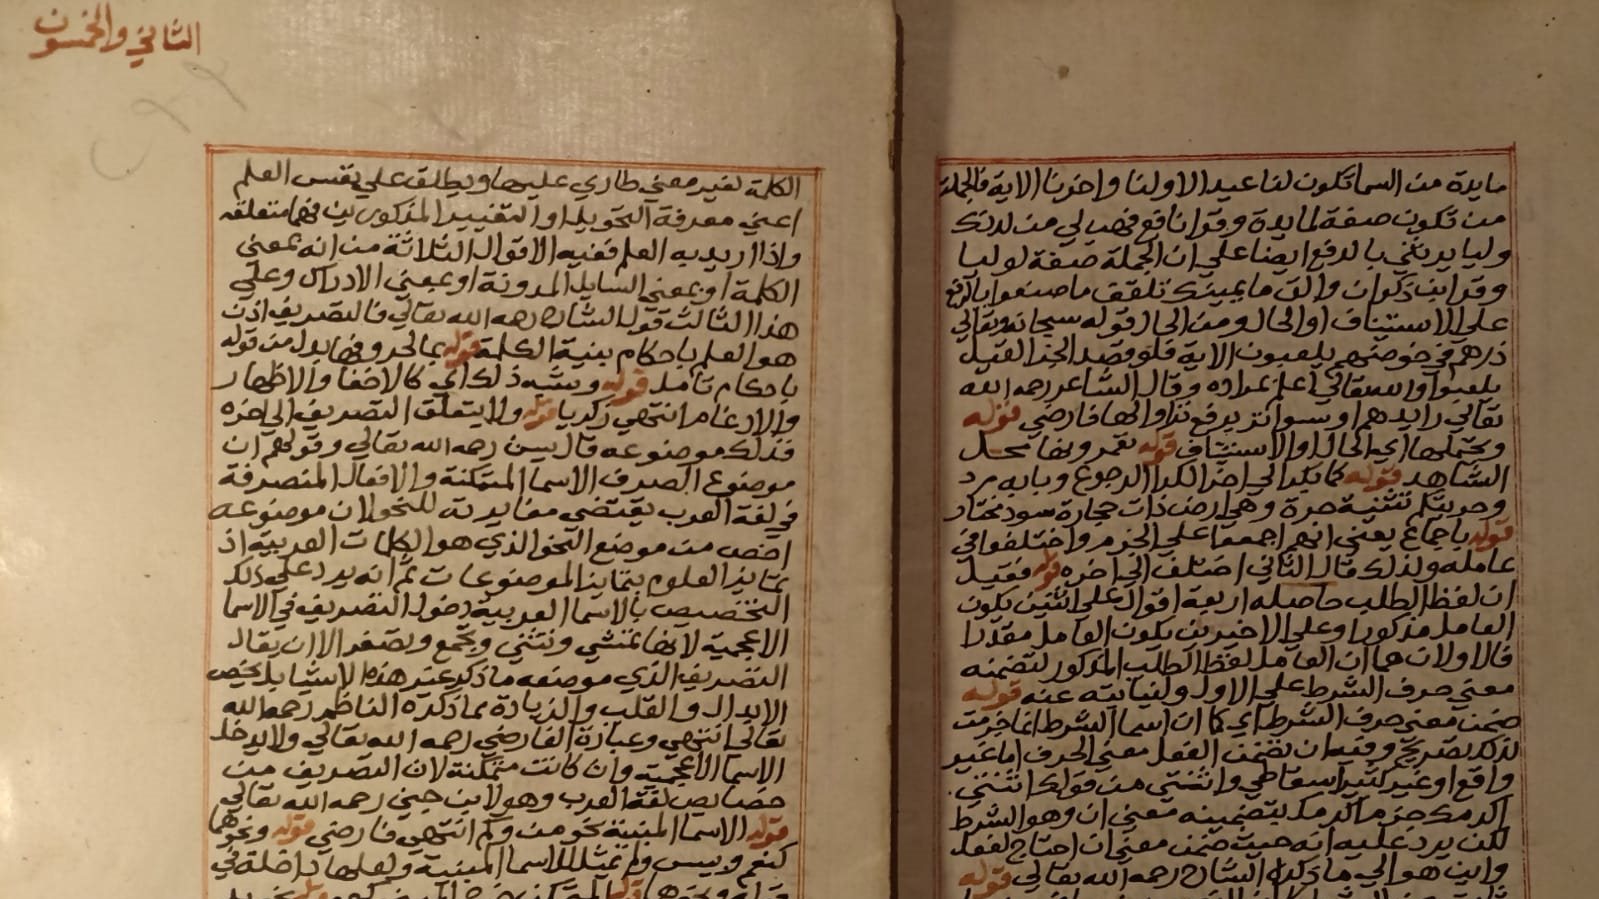 مايدة من السما تكون لنا عيد الاولنا واخرنا الاية فالجملة
من تكون صفة لمايدة وقوانافع فهب لي من لدنك
وليا يرثني بالرفع ايضا علي ان الجملة صفة لوليا
وقراابن ذكوان والق ما يمينك تلقف ما صنعوا بالرفع
علي الاستيناف او الحال ومن الحال قوله سبحانه وتعالي
ذرهم في خوضهم يلعبون الاية فلو قصد الجزا لقيل
يلعبوا والله تعالي اعلم بمراده وقال الشاعر رحمه الله
تعالي رايدهم ارسوا نزاولها فارضي قوله
ويحتملها اي الحال والاستيناف قوله تعمرونها محل
الشاهد قوله كما يكرالي اخره الكر الرجوع وبابه مرد
وحريتكم تثنية حرة وهي ارض ذات حجارة سود مختار
قوله باجماع يعني انهم اجمعوا علي الجزم واختلفوا في
عامله ولذلك قال الثاني اختلف الي اخره قوله فقيل
ان لفظ الطلب حاصله اربعة اقوال علي اثنين يكون
العامل مذكورا وعلي الاخيرين يكون العامل مقدرا
فالاولان هما ان العامل لفظ الطلب المذكور لتضمنه
معني حرف الشرط علي الاول ولنيابته عنه قوله
ضمن معني حرف الشرط اي كما ان اسما الشرط انما جزمت
لذلك تصريح وفيه ان تضمن الفعل معني الحرف اما غير
واقع او غير كثير اسقاطي وانثني من قولك اتثني
اكرمك جزم اكرمك بتضمينه معني ان وهو الشرط
لكن يرد عليه انه حيث ضمن معني ان احتاج لفعل
واين هو الي ما ذكره الشارح رحمه الله تعالي قوله
الثاني والخمسون
الكلمة لغير معني طاري عليها ويطلق علي نفس العلم
اعني معرفة التحويل او التغيير المذكورين فهما متعلقه
واذا اريد به العلم ففيه الاقوال الثلاثة من انه بمعني
الكلمة او بمعني السايل المدونة او بمعني الادراك وعلي
هذا الثالث قول الشارح رحمه الله تعالي فالتصريف اذن
هو العلم باحكام بنية الكلمة قوله بما لحروفها بدل من قوله
باحكام تامل قوله وشبه ذلك اي كالاخفا والاظهار
والادغام انتهي زكريا قوله ولا يتعلق التصريف الي اخره
فذلك موضوعه قال يس رحمه الله تعالي وقولهم ان
موضوع الصرف الاسما المتمكنة والافعال المتصرفة
في لغة العرب يقتضي مغايرته للنحو لان موضوعه
اخص من موضع النحو الذي هو الكلمات العربية اذ
تمايز العلوم بتمايز الموضوعات ثم انه يرد علي ذلك
التخصيص بالاسما العربية دخول التصريف في الاسما
الاعجمية لانها تمشي وتثني وتجمع وتصغر الا ان يقال
التصريف الذي موضعه ما ذكر غير هذه الاشيا بل يخص
الابدال والقلب والزيادة بما ذكره الناظم رحمه الله
تعالي انتهي وعبارة الفارضي رحمه الله تعالي ولا يدخل
الاسما الاعجمية وان كانت متمكنة لان التصريف من
خصايص لغة العرب وهو لابن جني رحمه الله تعالي
قوله الاسما المبنية نحو من وكم انتهي فارضي قوله ونحوها
كنعم وبيس ولم يمثل للاسما المبنية ولعلها داخلة في